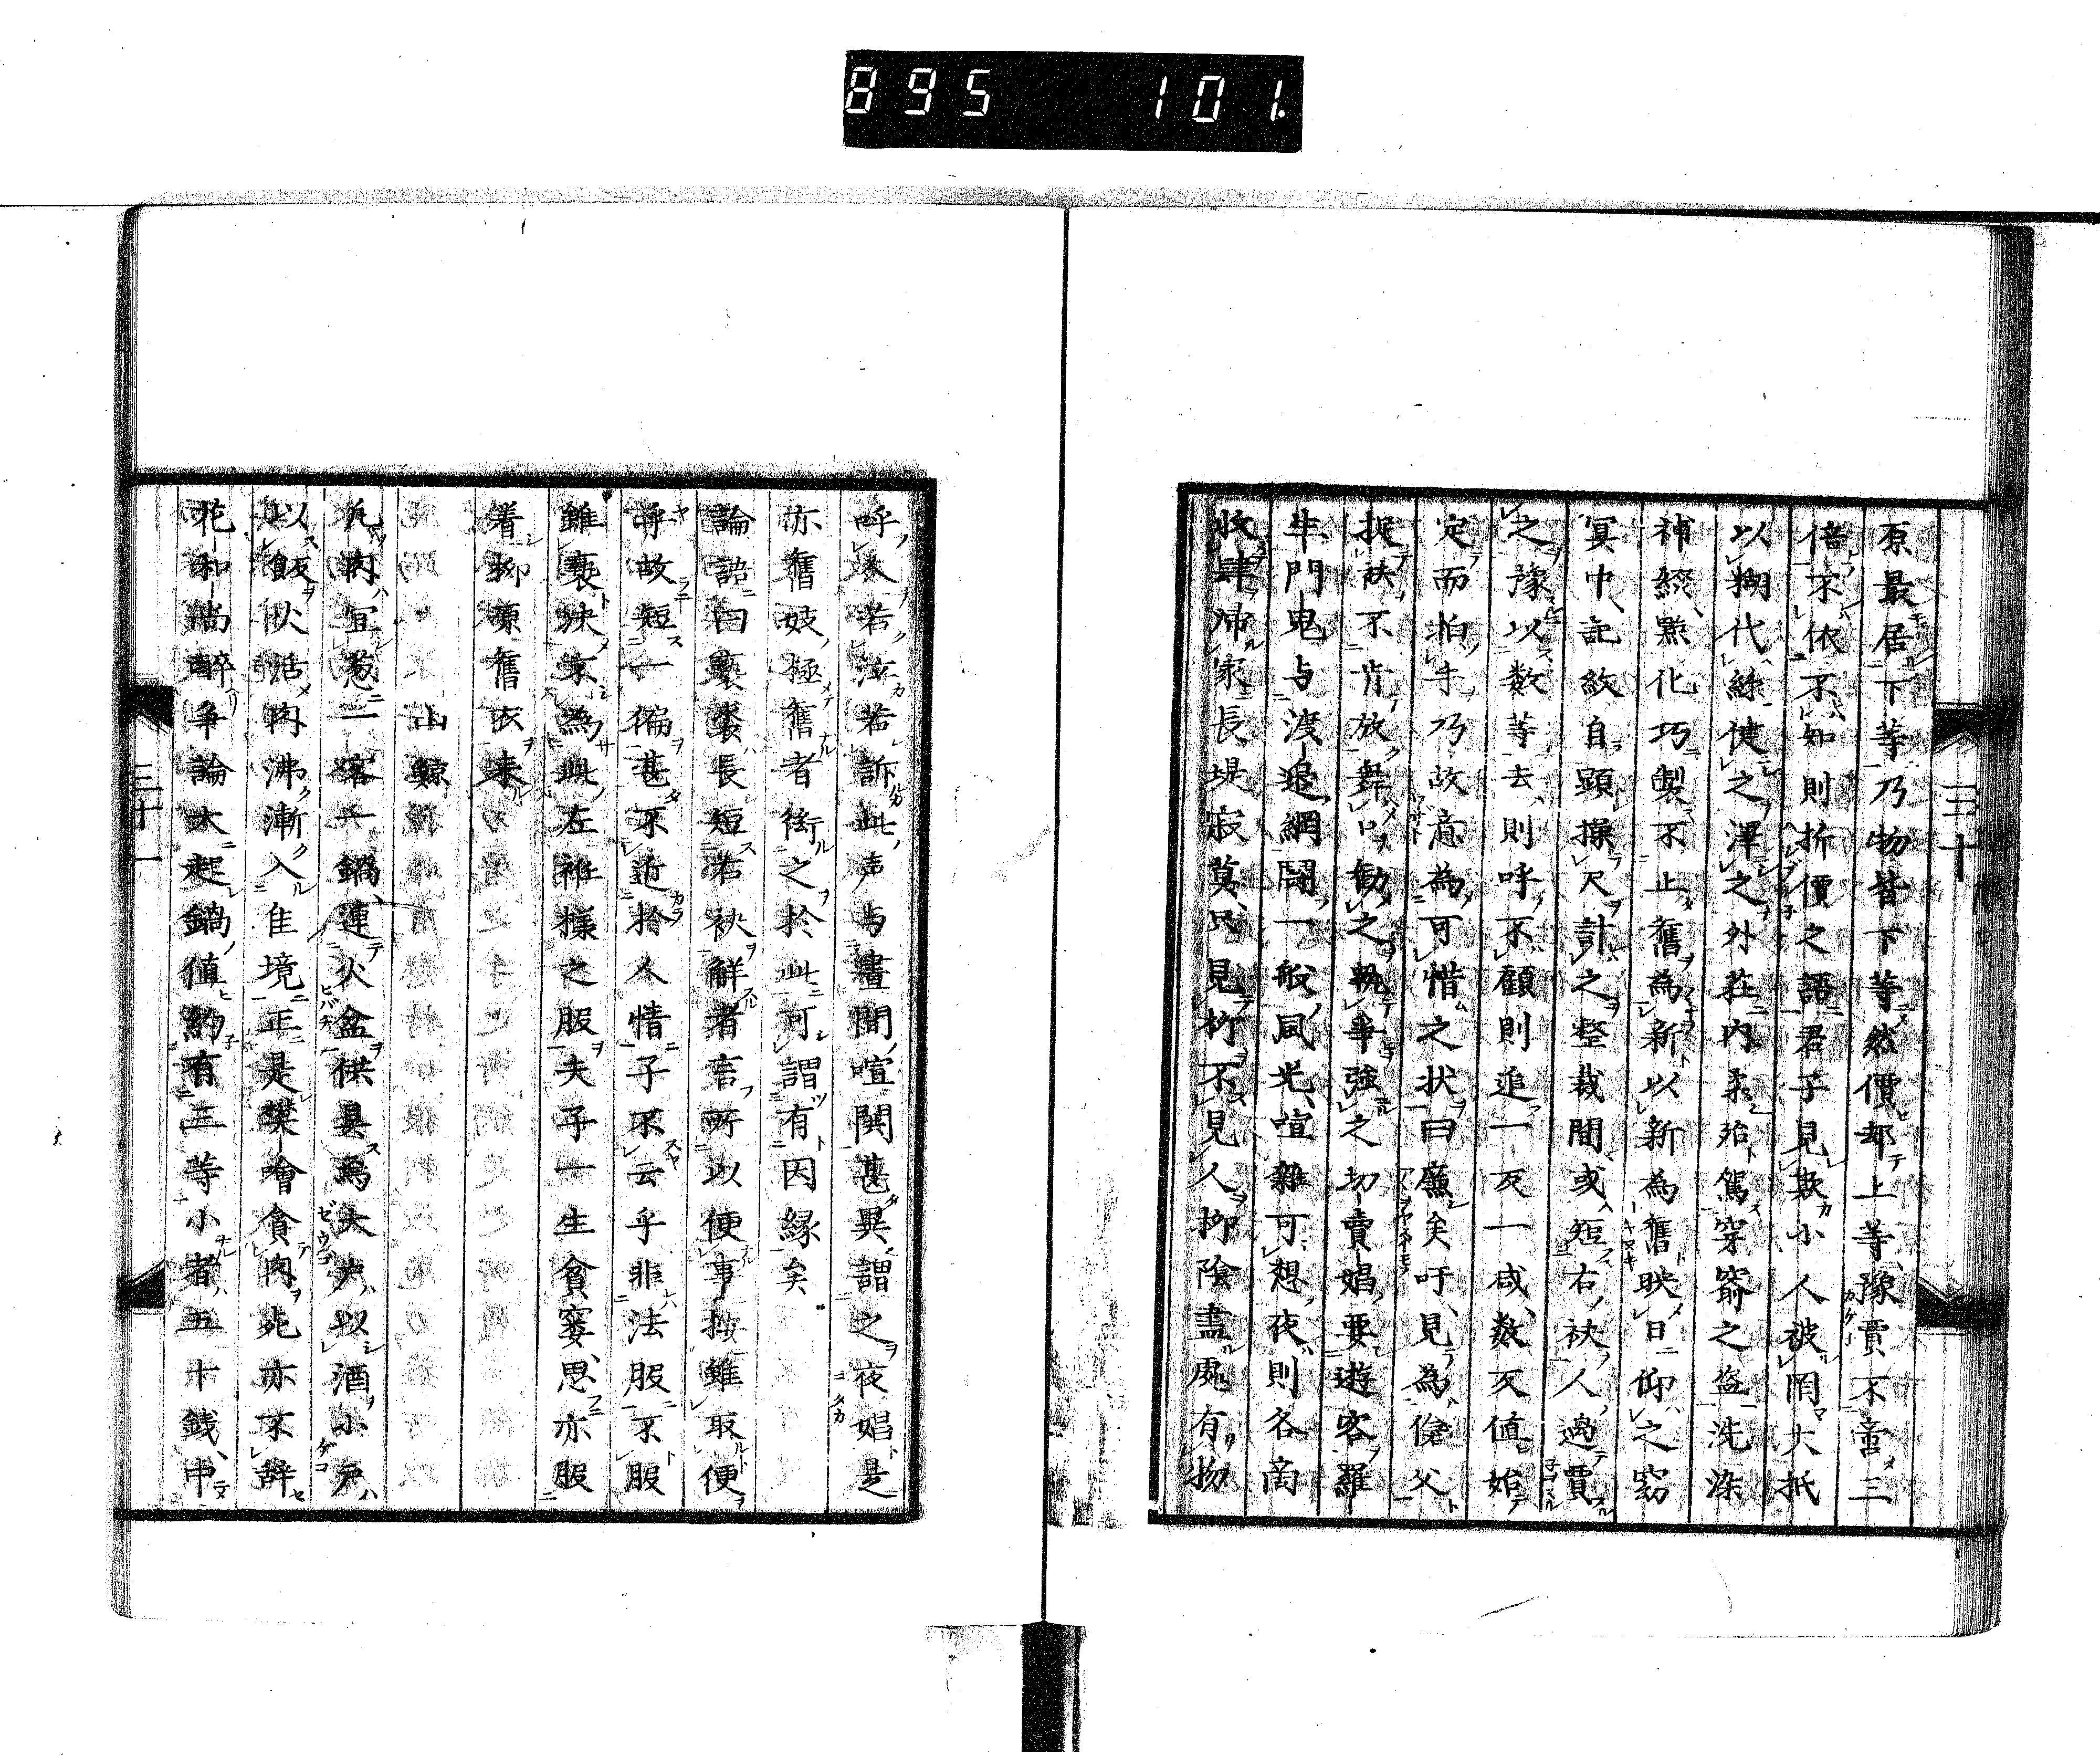 895 101.
原最居下等乃物皆下等然價却上等豫賈不啻三
倍不依不知則折價之語君子見欺小人被罔大抵
以糊代絲使之澤之外莊内柔殆篤穿窬之盜洗染
補綴點化巧製不止舊為新以新為舊映日仰之窈
冥中記紋自顕操尺計之整裁間或短右袂人過賈
之豫以数等去則呼不顧則追一反一咸数反値始
定而怕手乃故意為可惜之状曰廉矣吁見為傖父
捉袂不肯放舞口勧之執争強之切賣娼要遊客羅
生門鬼与渡邉綱鬪一般風光喧雜可想夜則各商
收肆帰家長堤寂莫只見柳不見人柳陰盡處有物
三十
呼人若泣若訴此声与晝間喧鬨甚異謂之夜娼是
亦舊妓極舊者衒之於此可謂有因縁矣
論語曰褻裘長短右袂解者言所以便事按雖取便
將故短一偏甚不近於人情子不云乎非法服不服
雖褻決不為此左袵様之服夫子一生貧窭思亦服
着柳原舊衣来
山鯨
凡肉宜葱一客一鍋連火盆供具焉大戸以酒小戸
以飯火活肉沸漸入佳境正是樊噲貪肉死亦不辞
花和尚醉争論大起鍋値約有三等小者五十銭中
三十一